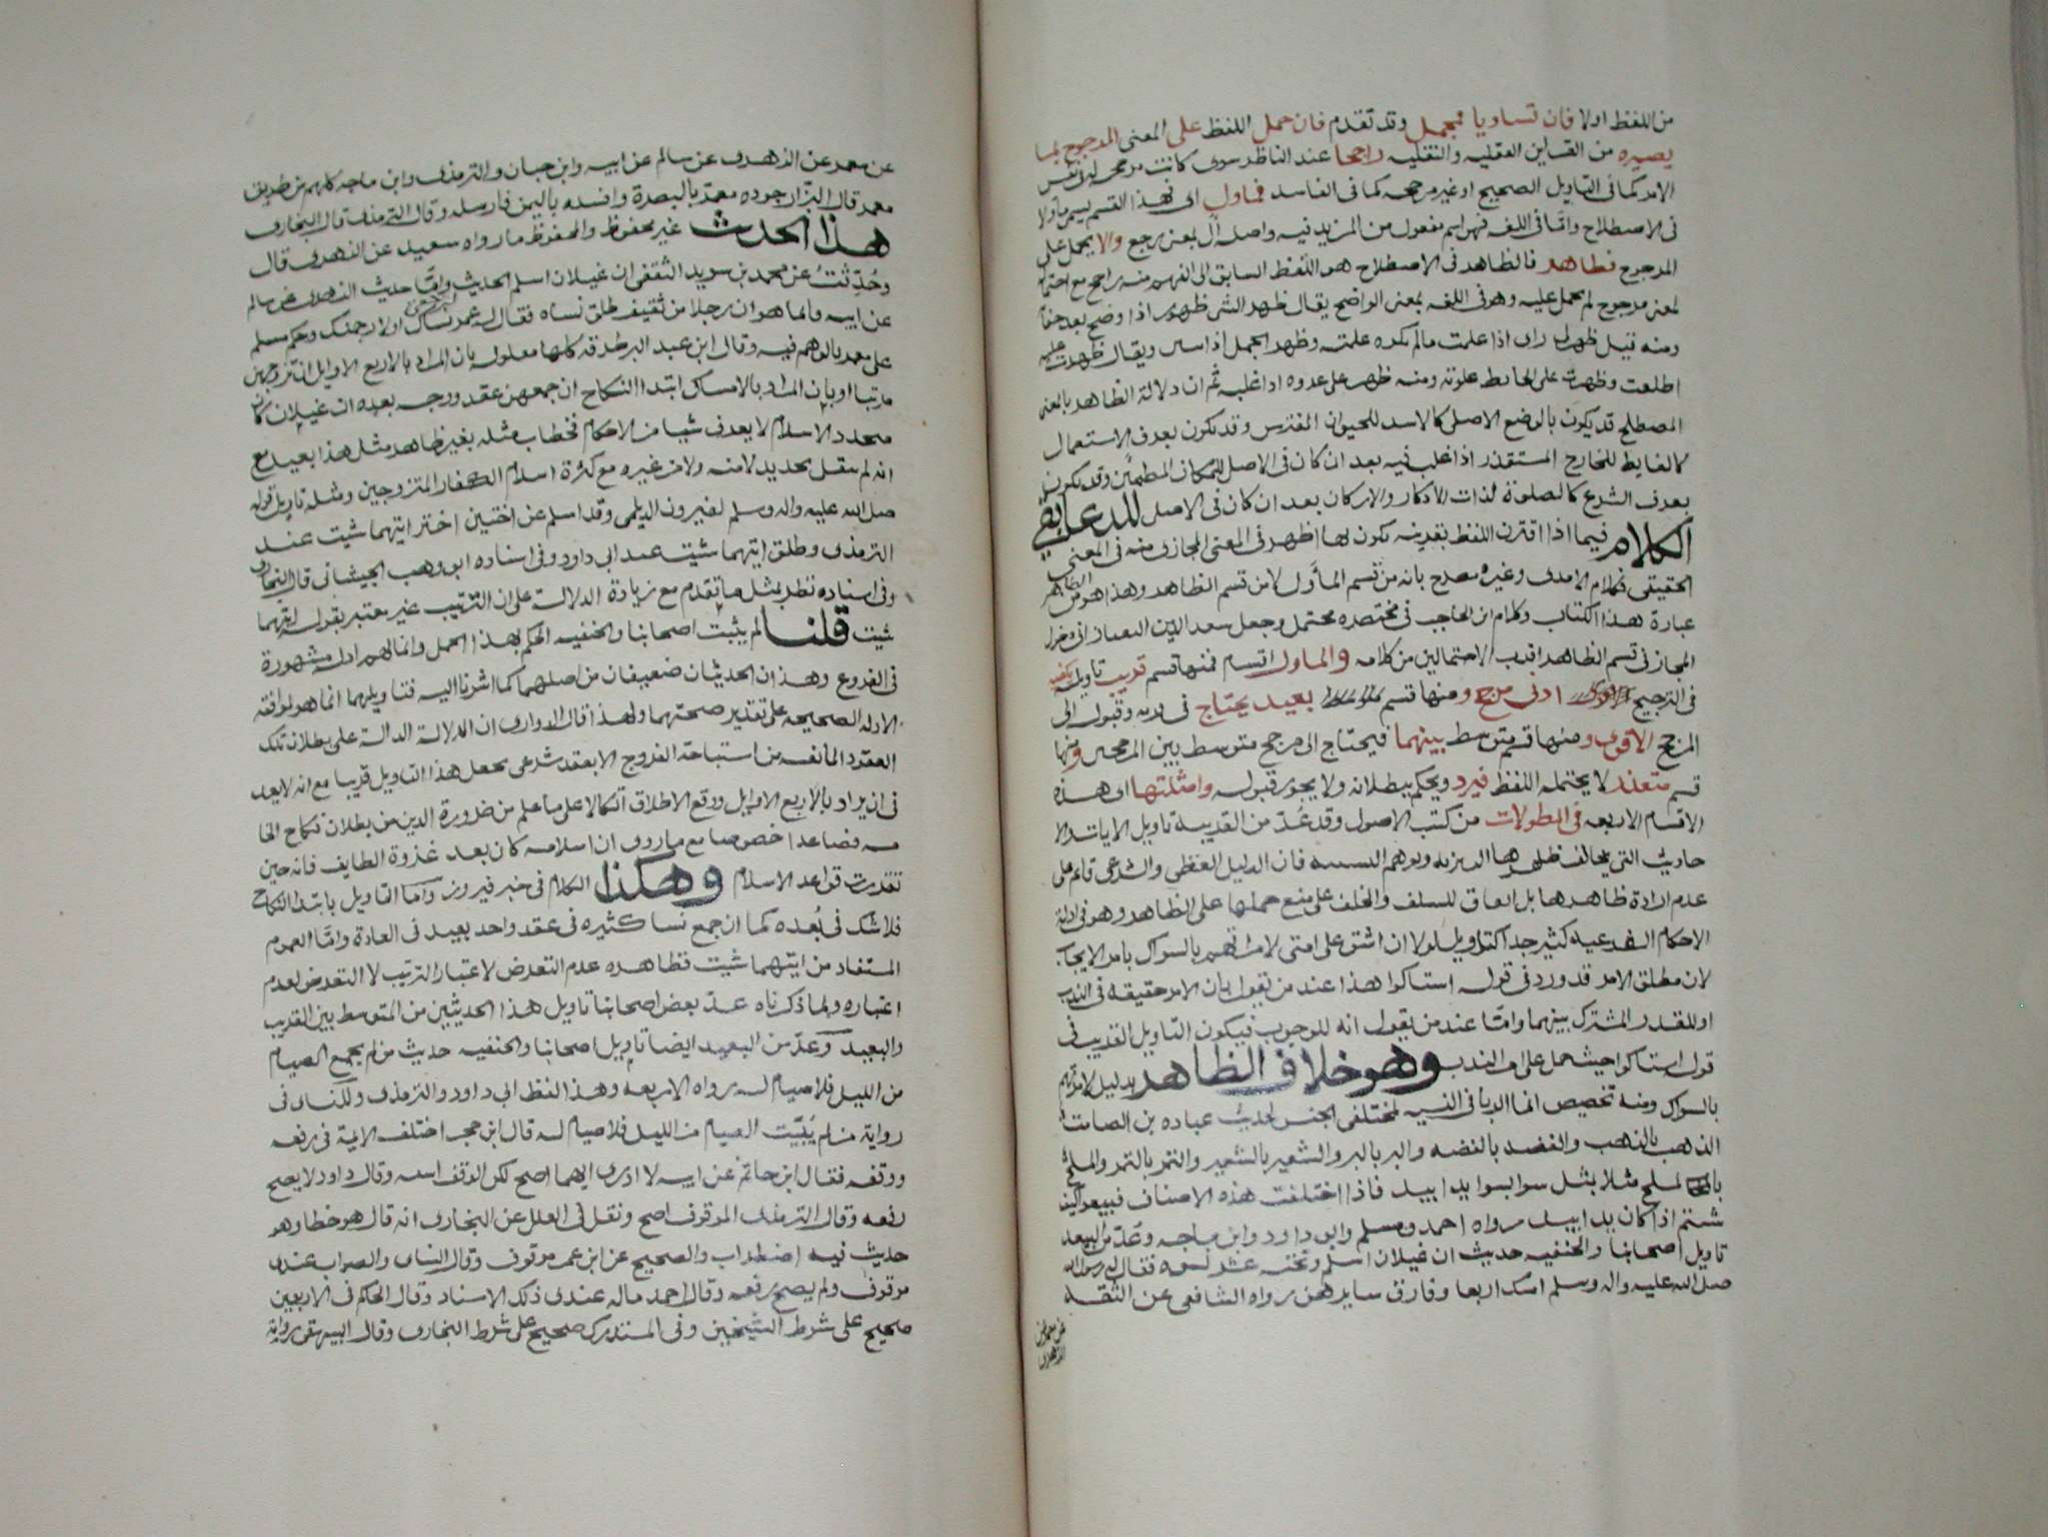 من اللفظ اولا فان تساويا فمجمل وقد تقدم فان حمل اللفظ على المعنى المرجوح بما
يصيره من القراين العقليه والنقليه راجحا عند الناظر سوى كانت مرجحه في نفس
الامر كما في التاويل الصحيح او غير مرجحه كما في الفاسد فماول اى فهذا القسم يسمى ماولا
فى الاصطلاح وامّا فى اللغه فهو اسم مفعول من المزيد فيه واصل آل بمعنى رجع والا يحمل على
المرجوح فظاهر فالظاهر فى الاصطلاح هو اللفظ السابق الى الفهم منه راجح مع احتمال
لمعنى مرجوح لم يحمل عليه وهو فى اللغه بمعنى الواضح يقال ظهر الشى ظهورا اذا وضح بعد خفا
ومنه قيل ظهر لى راى اذا علمت مالم تكن علمته وظهر الحمل اذا ويقال ظهرت عليه
اطلعت وظهرت على الحايط علوته ومنه ظهر على عدوه اذا غلبه ثم ان دلالة الظاهر بالمعنى
المصطلح قد يكون بالوضع الاصلى كالاسد للحيوان المفترس وقد تكون بعرف الاستعمال
كالغايط للخارج المستقذر اذا غلب فيه بعد ان كان فى الاصل للمكان المطمئن وقد تكون
بعرف الشرع كالصلوة لذات الاذكار والاركان بعد ان كان فى الاصل للدعا بقى
الكلام فيما اذا اقترن اللفظ بقرينه تكون لها اظهر فى المعنى المجازى منه فى المعنى
الحقيقى فكلام الامدى وغيره مصرح بانه من قسم المأوّل لا من قسم الظاهر وهذا هو الظاهر من
عبارة هذا الكتاب وكلام ابن الحاجب فى مختصره محتمل وجعل سعد الدين دخول
المجاز فى قسم الظاهر اقرب الاحتمالين من كلامه والماول اقسام فمنها قسم قريب تاويله يكفيه
فى الترجيح ادنى مرجح ومنها قسم بعيد يحتاج فى وقبوله الى
المرجح الاقوى ومنها قسم متوسط بينهما فيحتاج الى مرجح متوسط بين المرجحين ومنها
قسم متعذر لا يحتمله اللفظ فيرد ويحكم ببطلانه ولا يجوز قبوله وامثلتها اى هذه
الاقسام الاربعه فى المطولات من كتب الاصول وقد عُدّ من القريبة تاويل الايات والا
حاديث التى يخالف ظاهرها التنزيه ويوهم التشبيه فان الدليل العقلى والشرعى قايم على
عدم ارادة ظاهرها بل اتفاق للسلف والخلف على منع حملها على الظاهر وهو فى ادلة
الاحكام الشرعيه كثير جدا كتاويل لولا ان اشق على امتى لامرتهم بالسواك بامر الايجاب
لان مطلق الامر قد ورد فى قوله استاكوا هذا عند من يقول بان الامر حقيقه فى الندب
او للقدر المشترك بينهما وامّا عند من يقول انه للوجوب فيكون التاويل القريب فى
قوله استاكوا حيث حمل على الندب وهو خلاف الظاهر بدليل لامرتهم
بالسواك ومنه تخصيص انما الربا فى النسيه لمختلفى الجنس لحديث عباده بن الصامت
الذهب بالذهب والفضه بالفضه والبر بالبر والشعير بالشعير والتمر بالتمر والملح
بالملح مثلا بمثل سوا بسوا يدا بيد فاذا اختلفت هذه الاصناف فبيعوا كيف
شئتم اذا كان يدا بيد رواه احمد ومسلم وابو داود وابن ماجه وعُدّ من البعيد
تاويل اصحابنا والحنفيه حديث ان غيلان اسلم وتحته عشر نسوه فقال له رسول الله
صلى الله عليه واله وسلم امسك اربعا وفارق سايرهن رواه الشافعى عن الثقه
عن معمر عن
الزهرى
عن معمر عن الزهرى عن سالم عن ابيه وابن حبان والترمذى وابن ماجه كلهم من طريق
معمر قال البزار جوده معمر بالبصرة وافسده باليمن فارسله وقال الترمذى قال البخارى
هذا الحديث غير محفوظ والمحفوظ مارواه سعيد عن الزهرى قال
وحُدِّثتُ عن محمد بن سويد الثقفى ان غيلان اسلم الحديث وامّا حديث الزهرى عن سالم
عن ابيه فانما هو ان رجلا من ثقيف طلق نساه فقال له عمر نساك او لارجمنك وحكم مسلم
على معمر بالوهم فيه وقال ابن عبد البر طرقه كلها معلوله بان المراد بالاربع الاوايل ان تزوجهن
مرتبا او بان المراد بالامساك ابتدا النكاح ان جمعهن عقد ووجه بعده ان غيلان كان
متجدد الاسلام لا يعرف شيا من الاحكام فخطاب مثله بغير ظاهر مثل هذا بعيد مع
انه لم ينقل تجديد لا منه ولا من غيره مع كثرة اسلام الكفار المتزوجين ومثله تاويل قوله
صلى الله عليه واله وسلم لفيروز الديلمى وقد اسلم عن اختين اختر ايتهما شيت عند
الترمذى وطلق ايتهما شيت عند ابى داود وفى اسناده ابو وهب الجيشانى قال البخارى
وفى اسناده نظر بمثل ما تقدم مع زيادة الدلالة على ان الترتيب غير معتبر بقوله ايتهما
شيت قلنا لم يثبت اصحابنا والحنفيه الحكم بهذا الحمل وانما لهم ادلة مشهورة
فى الفروع وهذان الحديثان ضعيفان من اصلهما كما اشرنا اليه فتاويلهما انما هو لموافقه
الادله الصحيحه على تقدير صحتهما ولهذا قال الدوارى ان الدلالة الدالة على بطلان تلك
العقود المانعه من استباحة الفروج الا بعقد شرعى يجعل هذا التاويل قريبا مع انه لا يعد
فى ان يراد بالاربع الاوايل ووقع الاطلاق اتكالا على ما علم من ضرورة الدين من بطلان نكاح الخا
مسه فصاعدا خصوصا مع ماروى ان اسلامه كان بعد غزوة الطايف فانه حين
تقررت قواعد الاسلام وهكذا الكلام فى خبر فيروز وامّا التاويل بابتدا النكاح
فلاشك فى بُعده كما ان جمع نسا كثيره فى عقد واحد بعيد فى العادة وامّا العموم
المستفاد من ايتهما شيت فظاهره عدم التعرض لاعتبار الترتيب لا التعرض لعدم
اعتباره ولما ذكرناه عدّ بعض اصحابنا تاويل هذا الحديثين من المتوسط بين القريب
والبعيد وعُدّ من البعيد ايضا تاويل اصحابنا والحنفيه حديث من لم يجمع الصيام
من الليل فلا صيام له رواه الاربعة وهذا لفظ ابى داود والترمذى ولكنه فى
رواية من لم يُبيّت الصيام من الليل فلا صيام له قال ابن حجر اختلف الايمة فى رفعه
ووقفه فقال ابن حاتم عن ابيه لا ادرى ايهما اصح لكن الوقف اشبه وقال داود لا يصح
رفعه وقال الترمذى الموقوف اصح ونقل فى العلل عن البخارى انه قال هو خطا وهو
حديث فيه اضطراب والصحيح عن ابن عمر موقوف وقال النساى والصواب عندى
موقوف ولم يصح رفعه وقال احمد ماله عندى ذلك الاسناد وقال الحاكم فى الاربعين
صحيح على شرط الشيخين وفى المستدرك صحيح على شرط البخارى وقال البيهقى رواته